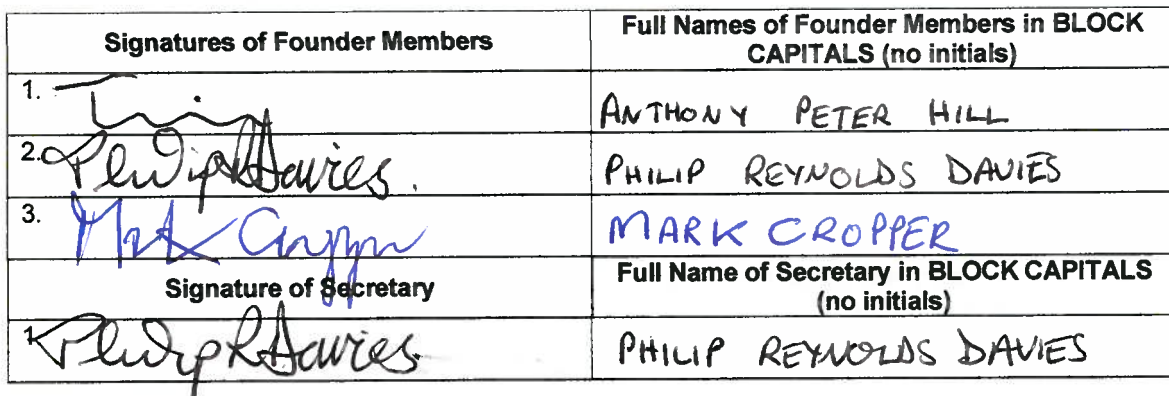 Signatures of Founder Members
Full Names of Founder Members in BLOCK
CAPITALS (no initials)
1.
ANTHONY PETER HILL
2. Philip R Davies.
PHILIP REYNOLDS DAVIES
3. Mark Cropper
MARK CROPPER
Signature of Secretary
Full Name of Secretary in BLOCK CAPITALS
(no initials)
1 Philip R Davies
PHILIP REYNOLDS DAVIES